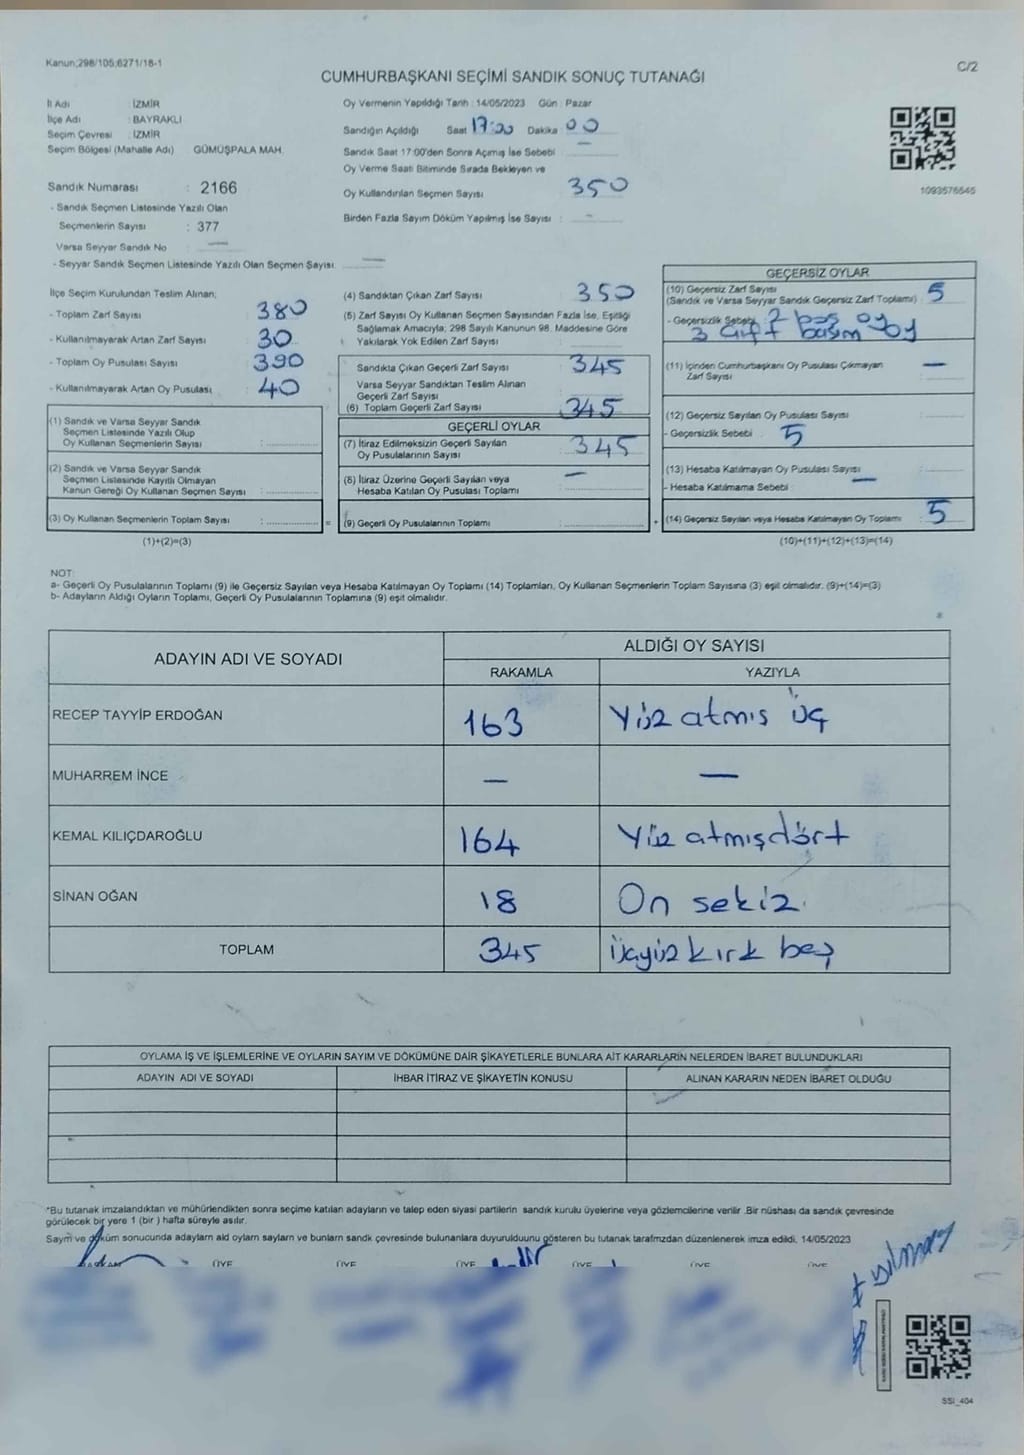 Kanun;298/105;6271/18-1
C/2
CUMHURBAŞKANI SEÇİMİ SANDIK SONUÇ TUTANAĞI
İl Adı : İZMİR
İlçe Adı : BAYRAKLI
Seçim Çevresi : İZMİR
Seçim Bölgesi (Mahalle Adı) GÜMÜŞPALA MAH.
Sandık Numarası : 2166
- Sandık Seçmen Listesinde Yazılı Olan
Seçmenlerin Sayısı : 377
Varsa Seyyar Sandık No : —
- Seyyar Sandık Seçmen Listesinde Yazılı Olan Seçmen Sayısı: —
Oy Vermenin Yapıldığı Tarih : 14/05/2023 Gün : Pazar
Sandığın Açıldığı Saat 17:00 Dakika 00
Sandık Saat 17:00'den Sonra Açımış İse Sebebi —
Oy Verme Saati Bitiminde Sırada Bekleyen ve
Oy Kullandırılan Seçmen Sayısı : 350
Birden Fazla Sayım Döküm Yapılmış İse Sayısı : -
1093576545
İlçe Seçim Kurulundan Teslim Alınan;
- Toplam Zarf Sayısı : 380
- Kullanılmayarak Artan Zarf Sayısı : 30
- Toplam Oy Pusulası Sayısı : 390
- Kullanılmayarak Artan Oy Pusulası : 40
(1) Sandık ve Varsa Seyyar Sandık
Seçmen Listesinde Yazılı Olup
Oy Kullanan Seçmenlerin Sayısı :
(2) Sandık ve Varsa Seyyar Sandık
Seçmen Listesinde Kayıtlı Olmayan
Kanun Gereği Oy Kullanan Seçmen Sayısı :
(3) Oy Kullanan Seçmenlerin Toplam Sayısı : =
(1)+(2)=(3)
(4) Sandıktan Çıkan Zarf Sayısı : 350
(5) Zarf Sayısı Oy Kullanan Seçmen Sayısından Fazla İse, Eşitliği
Sağlamak Amacıyla; 298 Sayılı Kanunun 98. Maddesine Göre
Yakılarak Yok Edilen Zarf Sayısı :
Sandıkta Çıkan Geçerli Zarf Sayısı : 345
Varsa Seyyar Sandıktan Teslim Alınan
Geçerli Zarf Sayısı :
(6) Toplam Geçerli Zarf Sayısı : 345
GEÇERLİ OYLAR
(7) İtiraz Edilmeksizin Geçerli Sayılan
Oy Pusulalarının Sayısı : 345
(8) İtiraz Üzerine Geçerli Sayılan veya
Hesaba Katılan Oy Pusulası Toplamı : —
(9) Geçerli Oy Pusulalarının Toplamı : +
GEÇERSİZ OYLAR
(10) Geçersiz Zarf Sayısı
(Sandık ve Varsa Seyyar Sandık Geçersiz Zarf Toplamı) : 5
- Geçersizlik Sebebi : 2 boş oy
3 çift basım oy
(11) İçinden Cumhurbaşkanı Oy Pusulası Çıkmayan
Zarf Sayısı : —
(12) Geçersiz Sayılan Oy Pusulası Sayısı :
- Geçersizlik Sebebi : 5
(13) Hesaba Katılmayan Oy Pusulası Sayısı : —
- Hesaba Katılmama Sebebi :
(14) Geçersiz Sayılan veya Hesaba Katılmayan Oy Toplamı : 5
(10)+(11)+(12)+(13)=(14)
NOT:
a- Geçerli Oy Pusulalarının Toplamı (9) ile Geçersiz Sayılan veya Hesaba Katılmayan Oy Toplamı (14) Toplamları, Oy Kullanan Seçmenlerin Toplam Sayısına (3) eşit olmalıdır. (9)+(14)=(3)
b- Adayların Aldığı Oyların Toplamı, Geçerli Oy Pusulalarının Toplamına (9) eşit olmalıdır.
ADAYIN ADI VE SOYADI
ALDIĞI OY SAYISI
RAKAMLA YAZIYLA
RECEP TAYYİP ERDOĞAN 163 Yüz atmıs üç
MUHARREM İNCE — —
KEMAL KILIÇDAROĞLU 164 Yüz atmışdört
SİNAN OĞAN 18 On sekiz
TOPLAM 345 üçyüz kırk beş
OYLAMA İŞ VE İŞLEMLERİNE VE OYLARIN SAYIM VE DÖKÜMÜNE DAİR ŞİKAYETLERLE BUNLARA AİT KARARLARIN NELERDEN İBARET BULUNDUKLARI
ADAYIN ADI VE SOYADI İHBAR İTİRAZ VE ŞİKAYETİN KONUSU ALINAN KARARIN NEDEN İBARET OLDUĞU
*Bu tutanak imzalandıktan ve mühürlendikten sonra seçime katılan adayların ve talep eden siyasi partilerin sandık kurulu üyelerine veya gözlemcilerine verilir .Bir nüshası da sandık çevresinde
görülecek bir yere 1 (bir ) hafta süreyle asılır.
Sayım ve döküm sonucunda adayların ald oyların sayların ve bunların sandk çevresinde bulunanlara duyurulduunu gösteren bu tutanak tarafmzdan düzenlenerek imza edildi. 14/05/2023
BAŞKAN ÜYE ÜYE ÜYE ÜYE ÜYE ÜYE
SSI_404